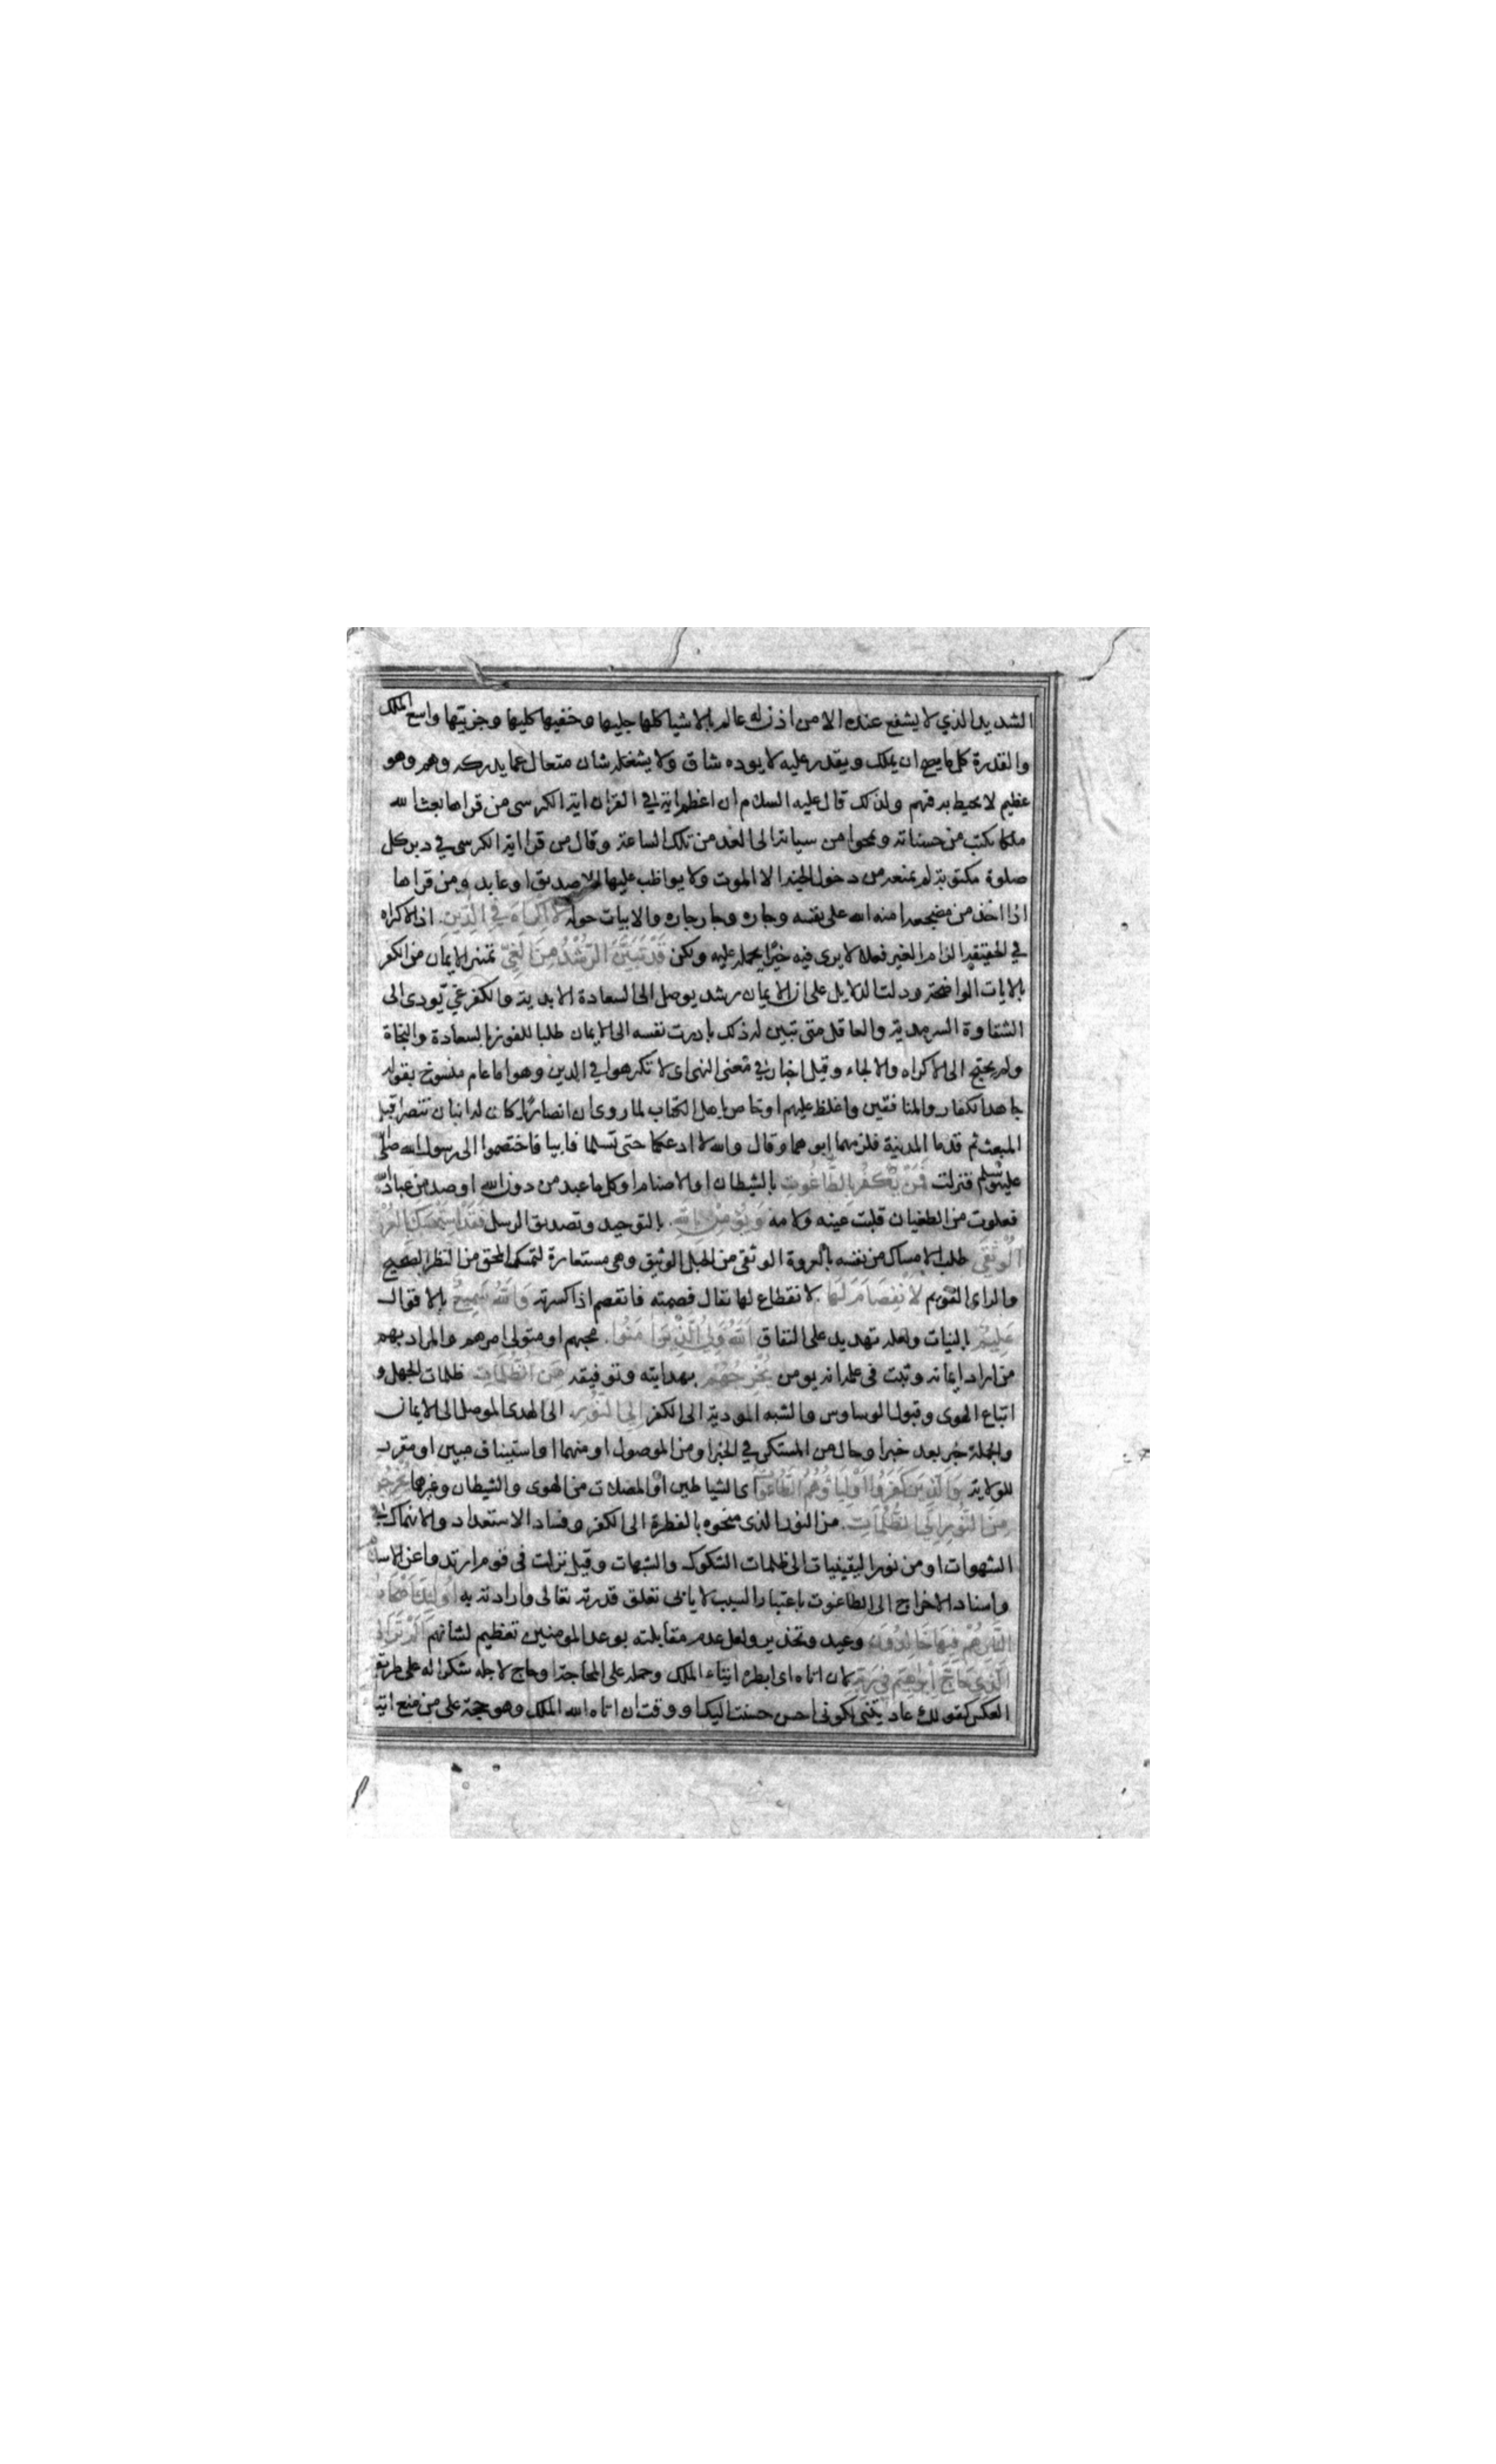 الشديد الذي لا يشفع عنده الا من اذن له عالم بالاشيا كلها جليها وخفيها كليها وجزيتها واسع الملك
والقدرة كل ما يصح ان يملك ويقدر عليه لا يوده شاق ولا يشغله شان متعال عما يدركه وهم وهو
عظيم لا يحيط به فهم ولذلك قال عليه السلام ان اعظم اية في القران اية الكرسي من قراها بعث الله
ملكا يكتب من حسناته ويمحوا من سياته الى الغد من تلك الساعة وقال من قرا اية الكرسي في دبر كل
صلوة مكتوبة لم يمنعه من دخول الجنة الا الموت ولا يواظب عليها الا صديق او عابد ومن قراها
اذا اخذ من مضجعه امنه الله على نفسه وجاره وجار جاره والابيات حوله لَا اِكْرَاهَ فِي الدِّينِ اذ الاكراه
في الحقيقة الزام الغير فعلا لا يرى فيه خيرًا يحمله عليه ولكن قَدْ تَبَيَّنَ الرُّشْدُ مِنَ الْغَيِّ تميز الايمان من الكفر
بالايات الواضحة ودلت الدلايل على ان الايمان رشد يوصل الى السعادة الابدية والكفر غيّ يودى الى
الشقاوة السرمدية والعاقل متى تبين له ذلك بادرت نفسه الى الايمان طلبا للفوز بالسعادة والنجاة
ولم يحتج الى الاكراه والالجاء وقيل اخبار في معنى النهى اى لا تكرهوا في الدين وهو اما عام منسوخ بقوله
جاهد الكفار والمنافقين واغلظ عليهم او خاص باهل الكتاب لما روى ان انصاريًا كان له ابنان تنصرا قبل
المبعث ثم قدما المدينة فلزمهما ابوهما وقال والله لا ادعكما حتى تسلما فابيا فاختصموا الى رسول الله صلى
عليه وسلم فنزلت فَمَنْ يَكْفُرْ بِالطَّاغُوتِ بالشيطان او الاصنام او كل ما عبد من دون الله او صد من عبادة الله
فعلوت من الطغيان قلبت عينه ولامه وَيُؤْمِنْ بِاللّٰهِ بالتوحيد وتصديق الرسل فَقَدِ اسْتَمْسَكَ بِالْعُرْوَةِ
الْوُثْقَى طلب الامساك من نفسه بالعروة الوثقى من الحبل الوثيق وهى مستعارة لتمسك المحق من النظر الصحيح
والراى القويم لَا انْفِصَامَ لَهَا لا نقطاع لها يقال فصمته فانفصم اذا كسرته وَاللّٰهُ سَمِيعٌ بالاقوال
عَلِيمٌ بالنيات ولعله تهديد على النفاق اَللّٰهُ وَلِيُّ الَّذِينَ اٰمَنُوا محبهم او متولى امرهم والمراد بهم
من اراد ايمانه وثبت فى علمه انه يومن يُخْرِجُهُمْ بهدايته وتوفيقه مِنَ الظُّلُمَاتِ ظلمات الجهل و
اتباع الهوى وقبول الوساوس والشبه المودية الى الكفر اِلَى النُّورِ الى الهدى الموصل الى الايمان
والجملة خبر بعد خبر او حال من المستكن في الخبر او من الموصول او منهما او استيناف مبين او مقرر
للولاية وَالَّذِينَ كَفَرُوا اَوْلِيَاؤُهُمُ الطَّاغُوتُ اى الشياطين او المضلات من الهوى والشيطان وغيرهما يُخْرِجُونَهُمْ
مِنَ النُّورِ اِلَى الظُّلُمَاتِ من النور الذى منحوه بالفطرة الى الكفر وفساد الاستعداد والانهماك في
الشهوات او من نور اليقينيات الى ظلمات الشكوك والشبهات وقيل نزلت فى قوم ارتدوا عن الاسلام
واسناد الاخراج الى الطاغوت باعتبار السبب لا يابى تعلق قدرته تعالى وارادته به اُولٰئِكَ اَصْحَابُ
النَّارِ هُمْ فِيهَا خَالِدُونَ وعيد وتحذير ولعل عدم مقابلته بوعد المومنين تعظيم لشانهم اَلَمْ تَرَ اِلَى
الَّذِي حَاجَّ اِبْرٰهِيمَ فِي رَبِّهِ لان اتاه اى ابطره ايتاء الملك وحمله على المحاجة او حاج لاجله شكرا له على طريقة
العكس كقولك عاديتنى لكونى احسنت اليك او وقت ان اتاه الله الملك وهو حجة على من منع ايتا